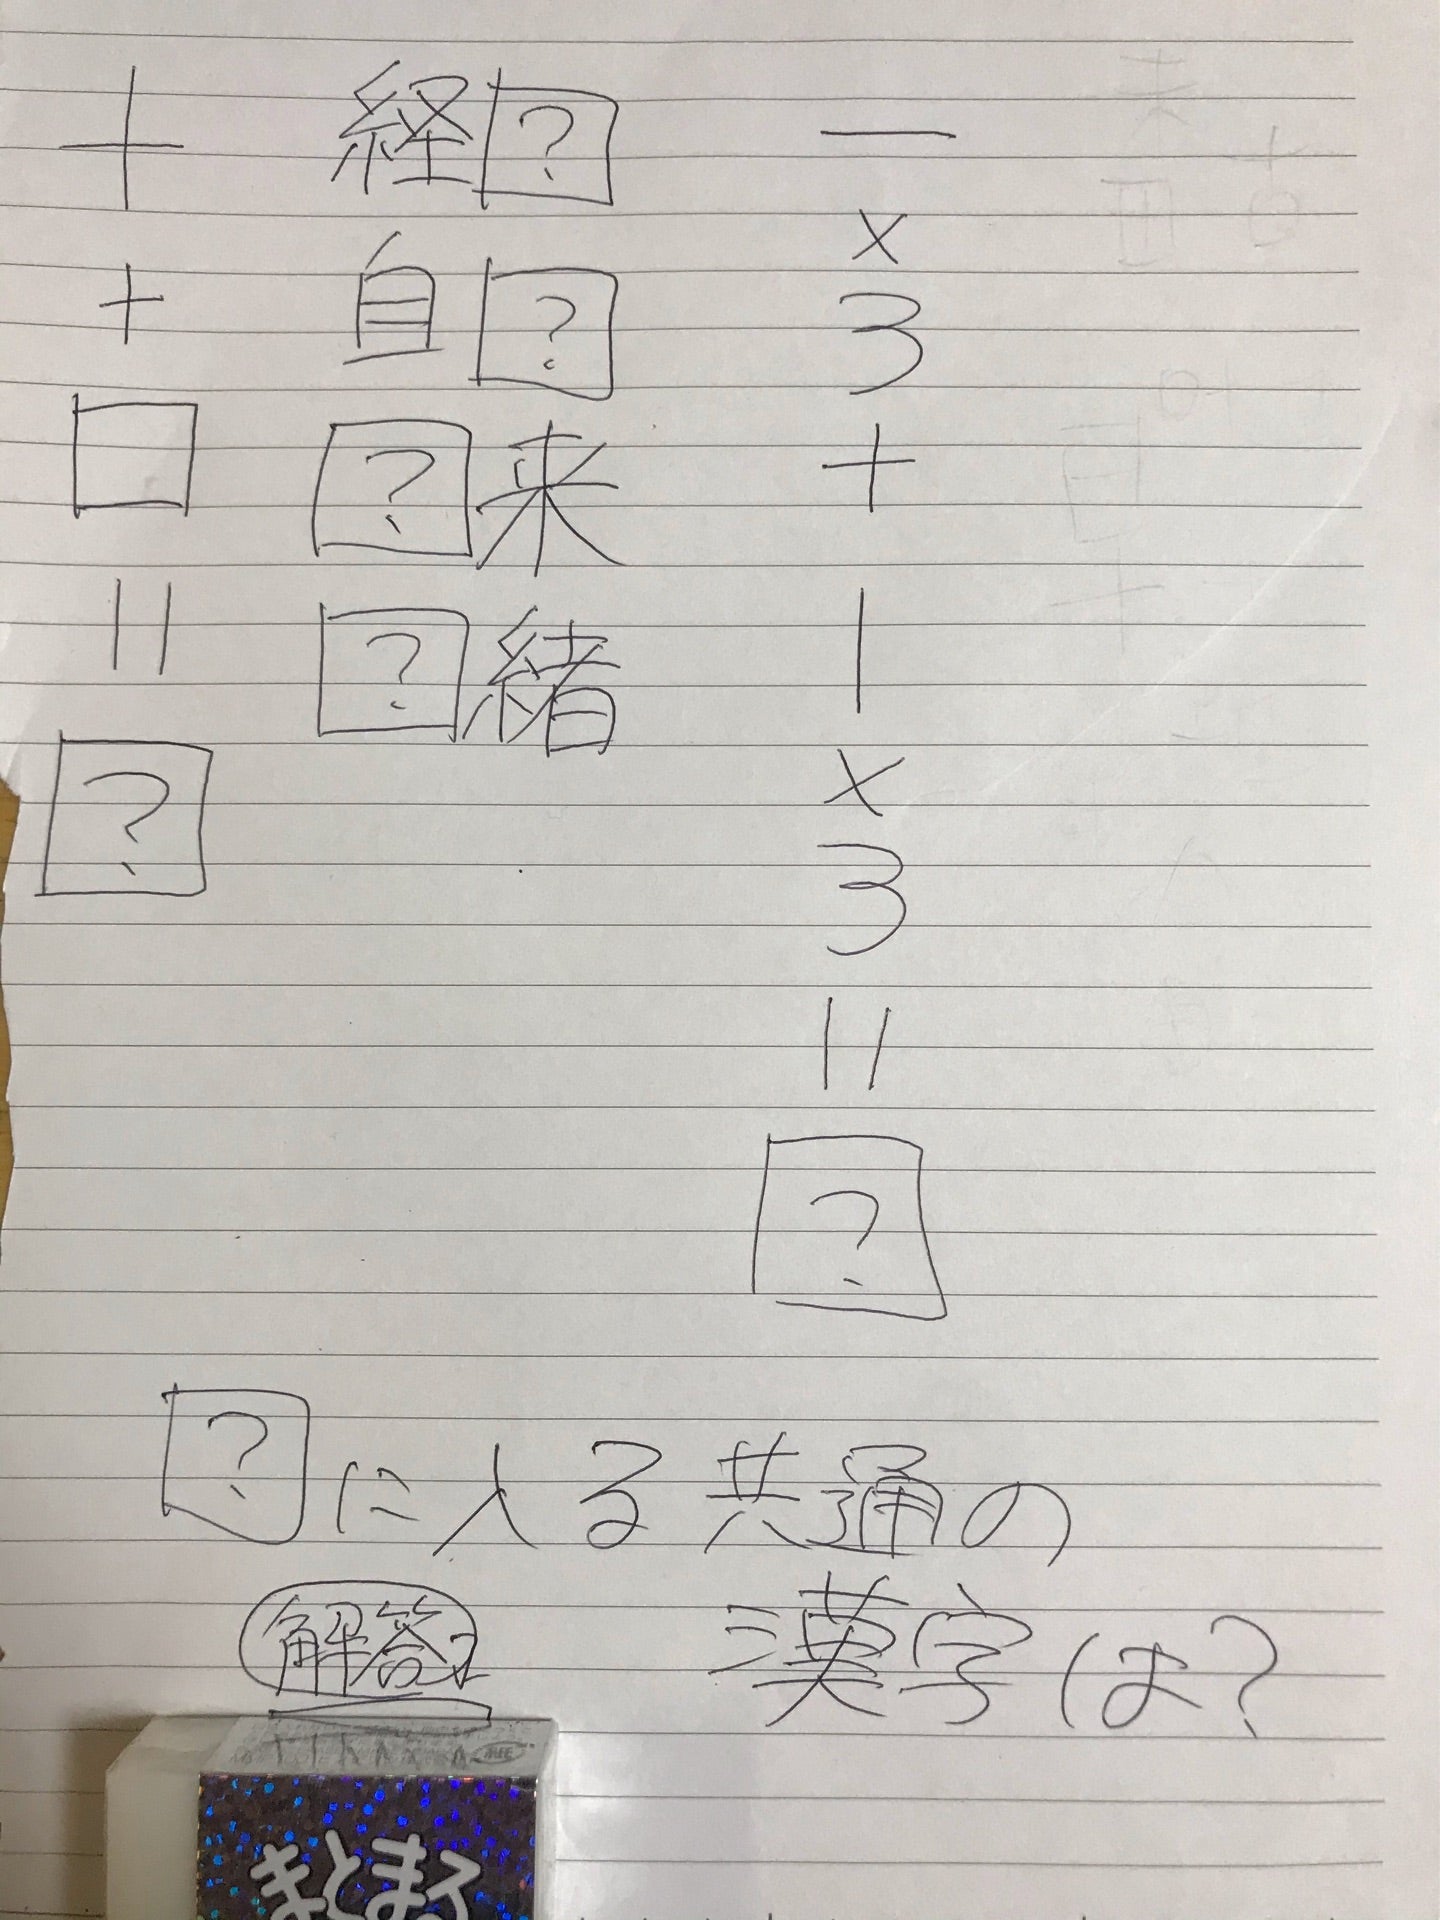 一
×
3
+
｜
×
3
=
?
経?
自?
?来
?緒
十
+
口
=
?
?に入る共通の
漢字は?
解答
まとまる